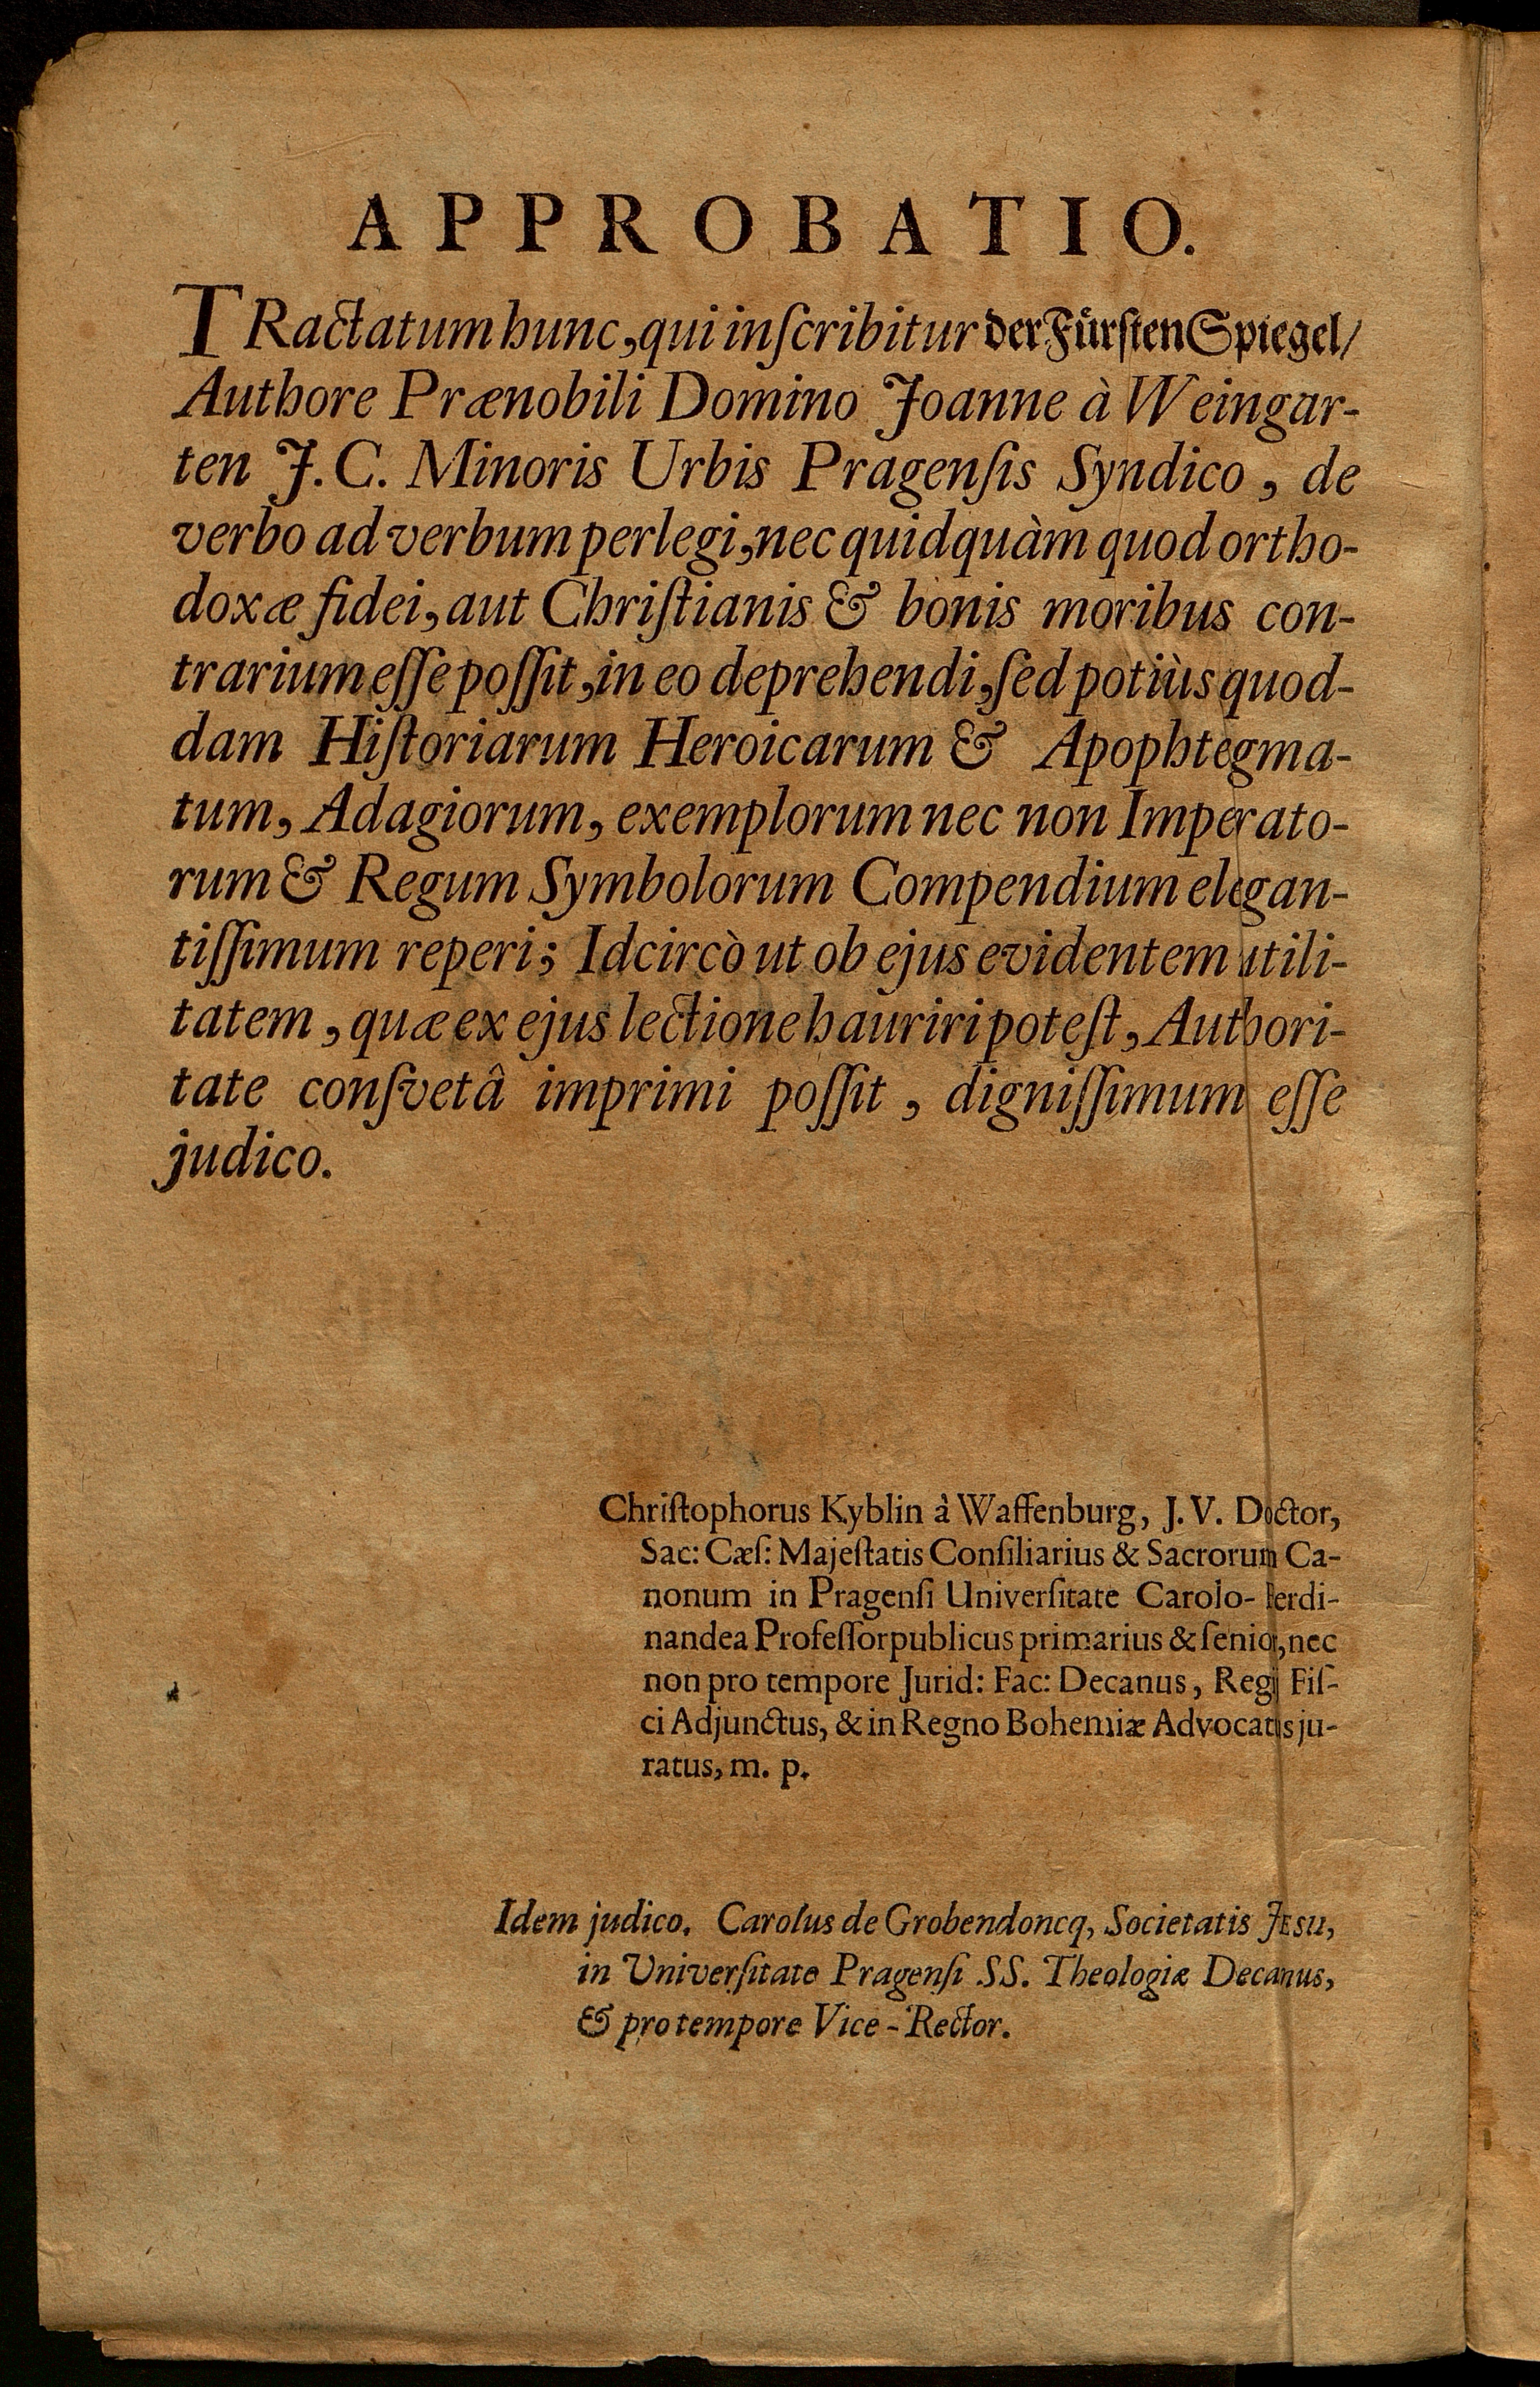 APPROBATIO.
TRactatum hunc, qui inſcribitur der Fürſten Spiegel/
Authore Prænobili Domino Joanne à Weingar-
ten J.C. Minoris Urbis Pragenſis Syndico, de
verbo ad verbum perlegi, nec quidquàm quod ortho-
doxæ fidei, aut Chriſtianis & bonis moribus con-
trarium eſſe poſſit, in eo deprehendi, ſed potiùs quod-
dam Hiſtoriarum Heroicarum & Apophtegma-
tum, Adagiorum, exemplorum nec non Imperato-
rum & Regum Symbolorum Compendium elegan-
tiſſimum reperi; Idcircò ut ob ejus evidentem utili-
tatem, quæ ex ejus lectione hauriri poteſt, Authori-
tate conſvetâ imprimi poſſit, digniſſimum eſſe
judico.
Chriſtophorus Kyblin à Waffenburg, J. V. Doctor,
Sac: Cæſ: Majeſtatis Conſiliarius & Sacrorum Ca-
nonum in Pragenſi Univerſitate Carolo-Ferdi-
nandea Profeſſor publicus primarius & ſenior, nec
non pro tempore Jurid: Fac: Decanus, Regij Fiſ-
ci Adjunctus, & in Regno Bohemiæ Advocatus ju-
ratus, m. p.
Idem judico. Carolus de Grobendoncq, Societatis JEsu,
in Univerſitate Pragenſi SS. Theologiæ Decanus,
& pro tempore Vice-Rector.